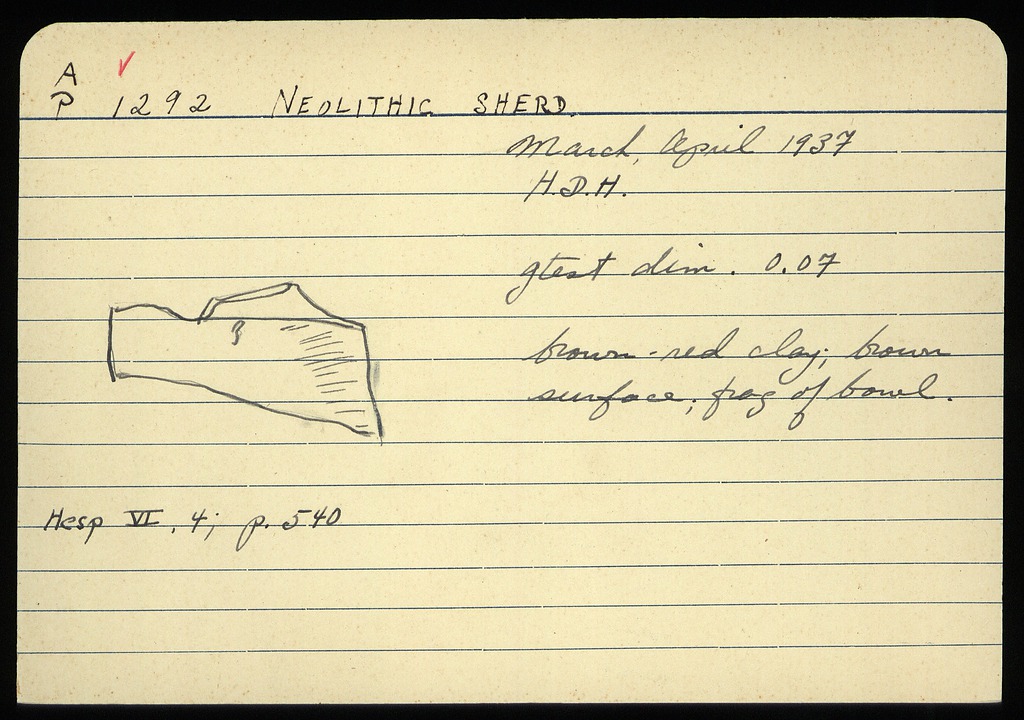 A
P 1292 NEOLITHIC SHERD.
March, April 1937
H.D.H.
gtest dim. 0.07
brown-red clay; brown
surface; frag of bowl.
Hesp VI, 4; p. 540